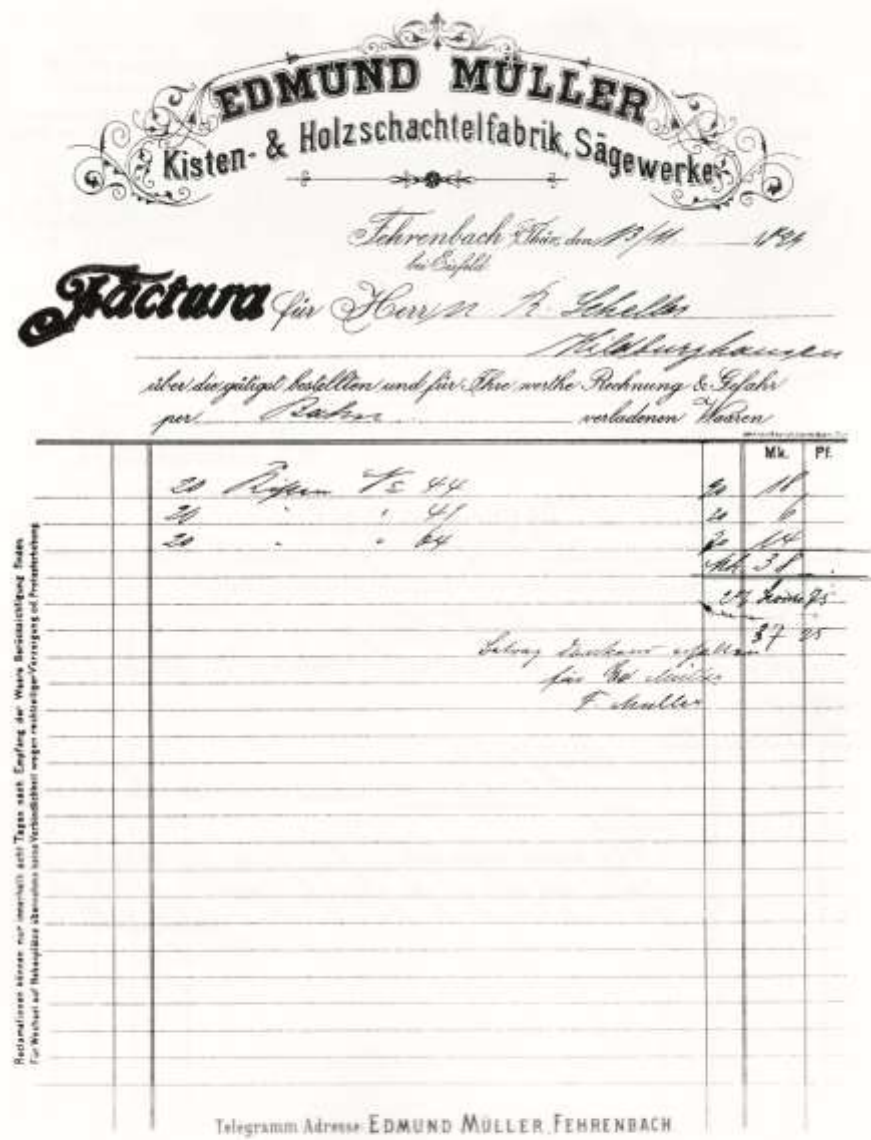 EDMUND MÜLLER
Kisten- & Holzschachtelfabrik, Sägewerke
Fehrenbach i/Thür, den 13/11. 18
bei Eisfeld
Factura für Herrn R. Scheller
Hildburghausen
über die gütigst bestellten und für Ihre werthe Rechnung & Gefahr
per Bahn verladenen Waaren
Mk. Pf.
20 Kisten No 44 90 18
20 " " 41 6
20 " " 64 70 14
Mk. 38
2% Sconto 75
37 25
Betrag dankend erhalten
für Ed Müller
F. Müller
Reclamationen können nur innerhalb acht Tagen nach Empfang der Waare Berücksichtigung finden
Für Wechsel auf Nebenplätze übernehme keine Verbindlichkeit wegen rechtzeitiger Vorzeigung od. Protesterhebung
Telegramm Adresse: EDMUND MÜLLER, FEHRENBACH.